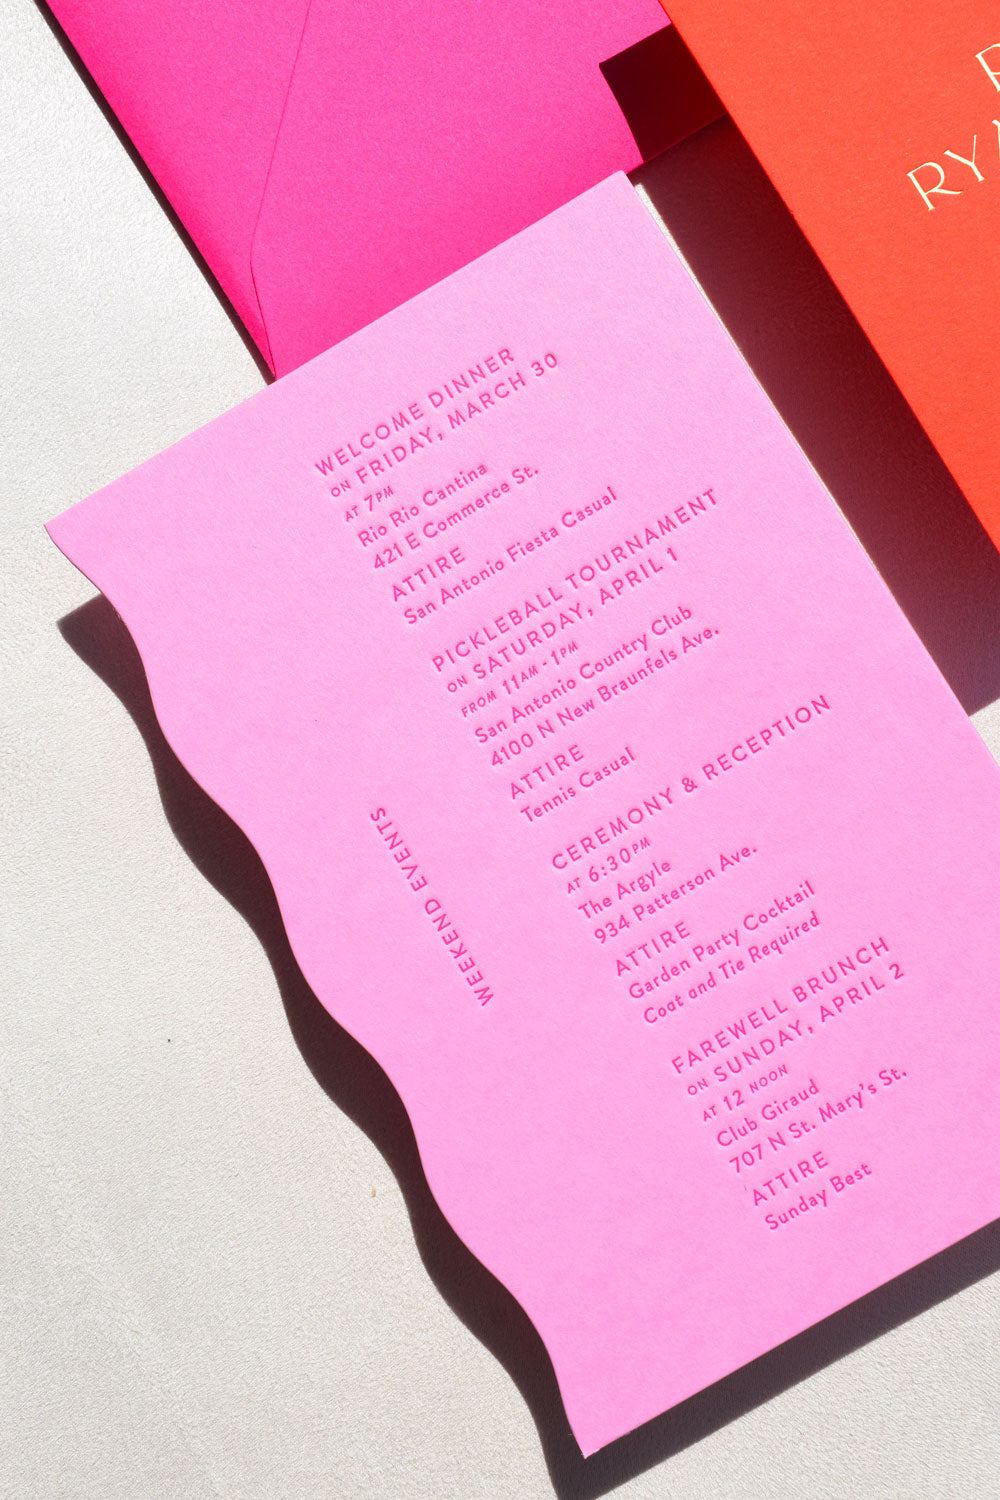 WELCOME DINNER
ON FRIDAY, MARCH 30
AT 7PM
Rio Rio Cantina
421 E Commerce St.
ATTIRE
San Antonio Fiesta Casual
PICKLEBALL TOURNAMENT
ON SATURDAY, APRIL 1
FROM 11AM - 1PM
San Antonio Country Club
4100 N New Braunfels Ave.
ATTIRE
Tennis Casual
CEREMONY & RECEPTION
AT 6:30PM
The Argyle
934 Patterson Ave.
ATTIRE
Garden Party Cocktail
Coat and Tie Required
FAREWELL BRUNCH
ON SUNDAY, APRIL 2
AT 12 NOON
Club Giraud
707 N St. Mary's St.
ATTIRE
Sunday Best
WEEKEND EVENTS
RY